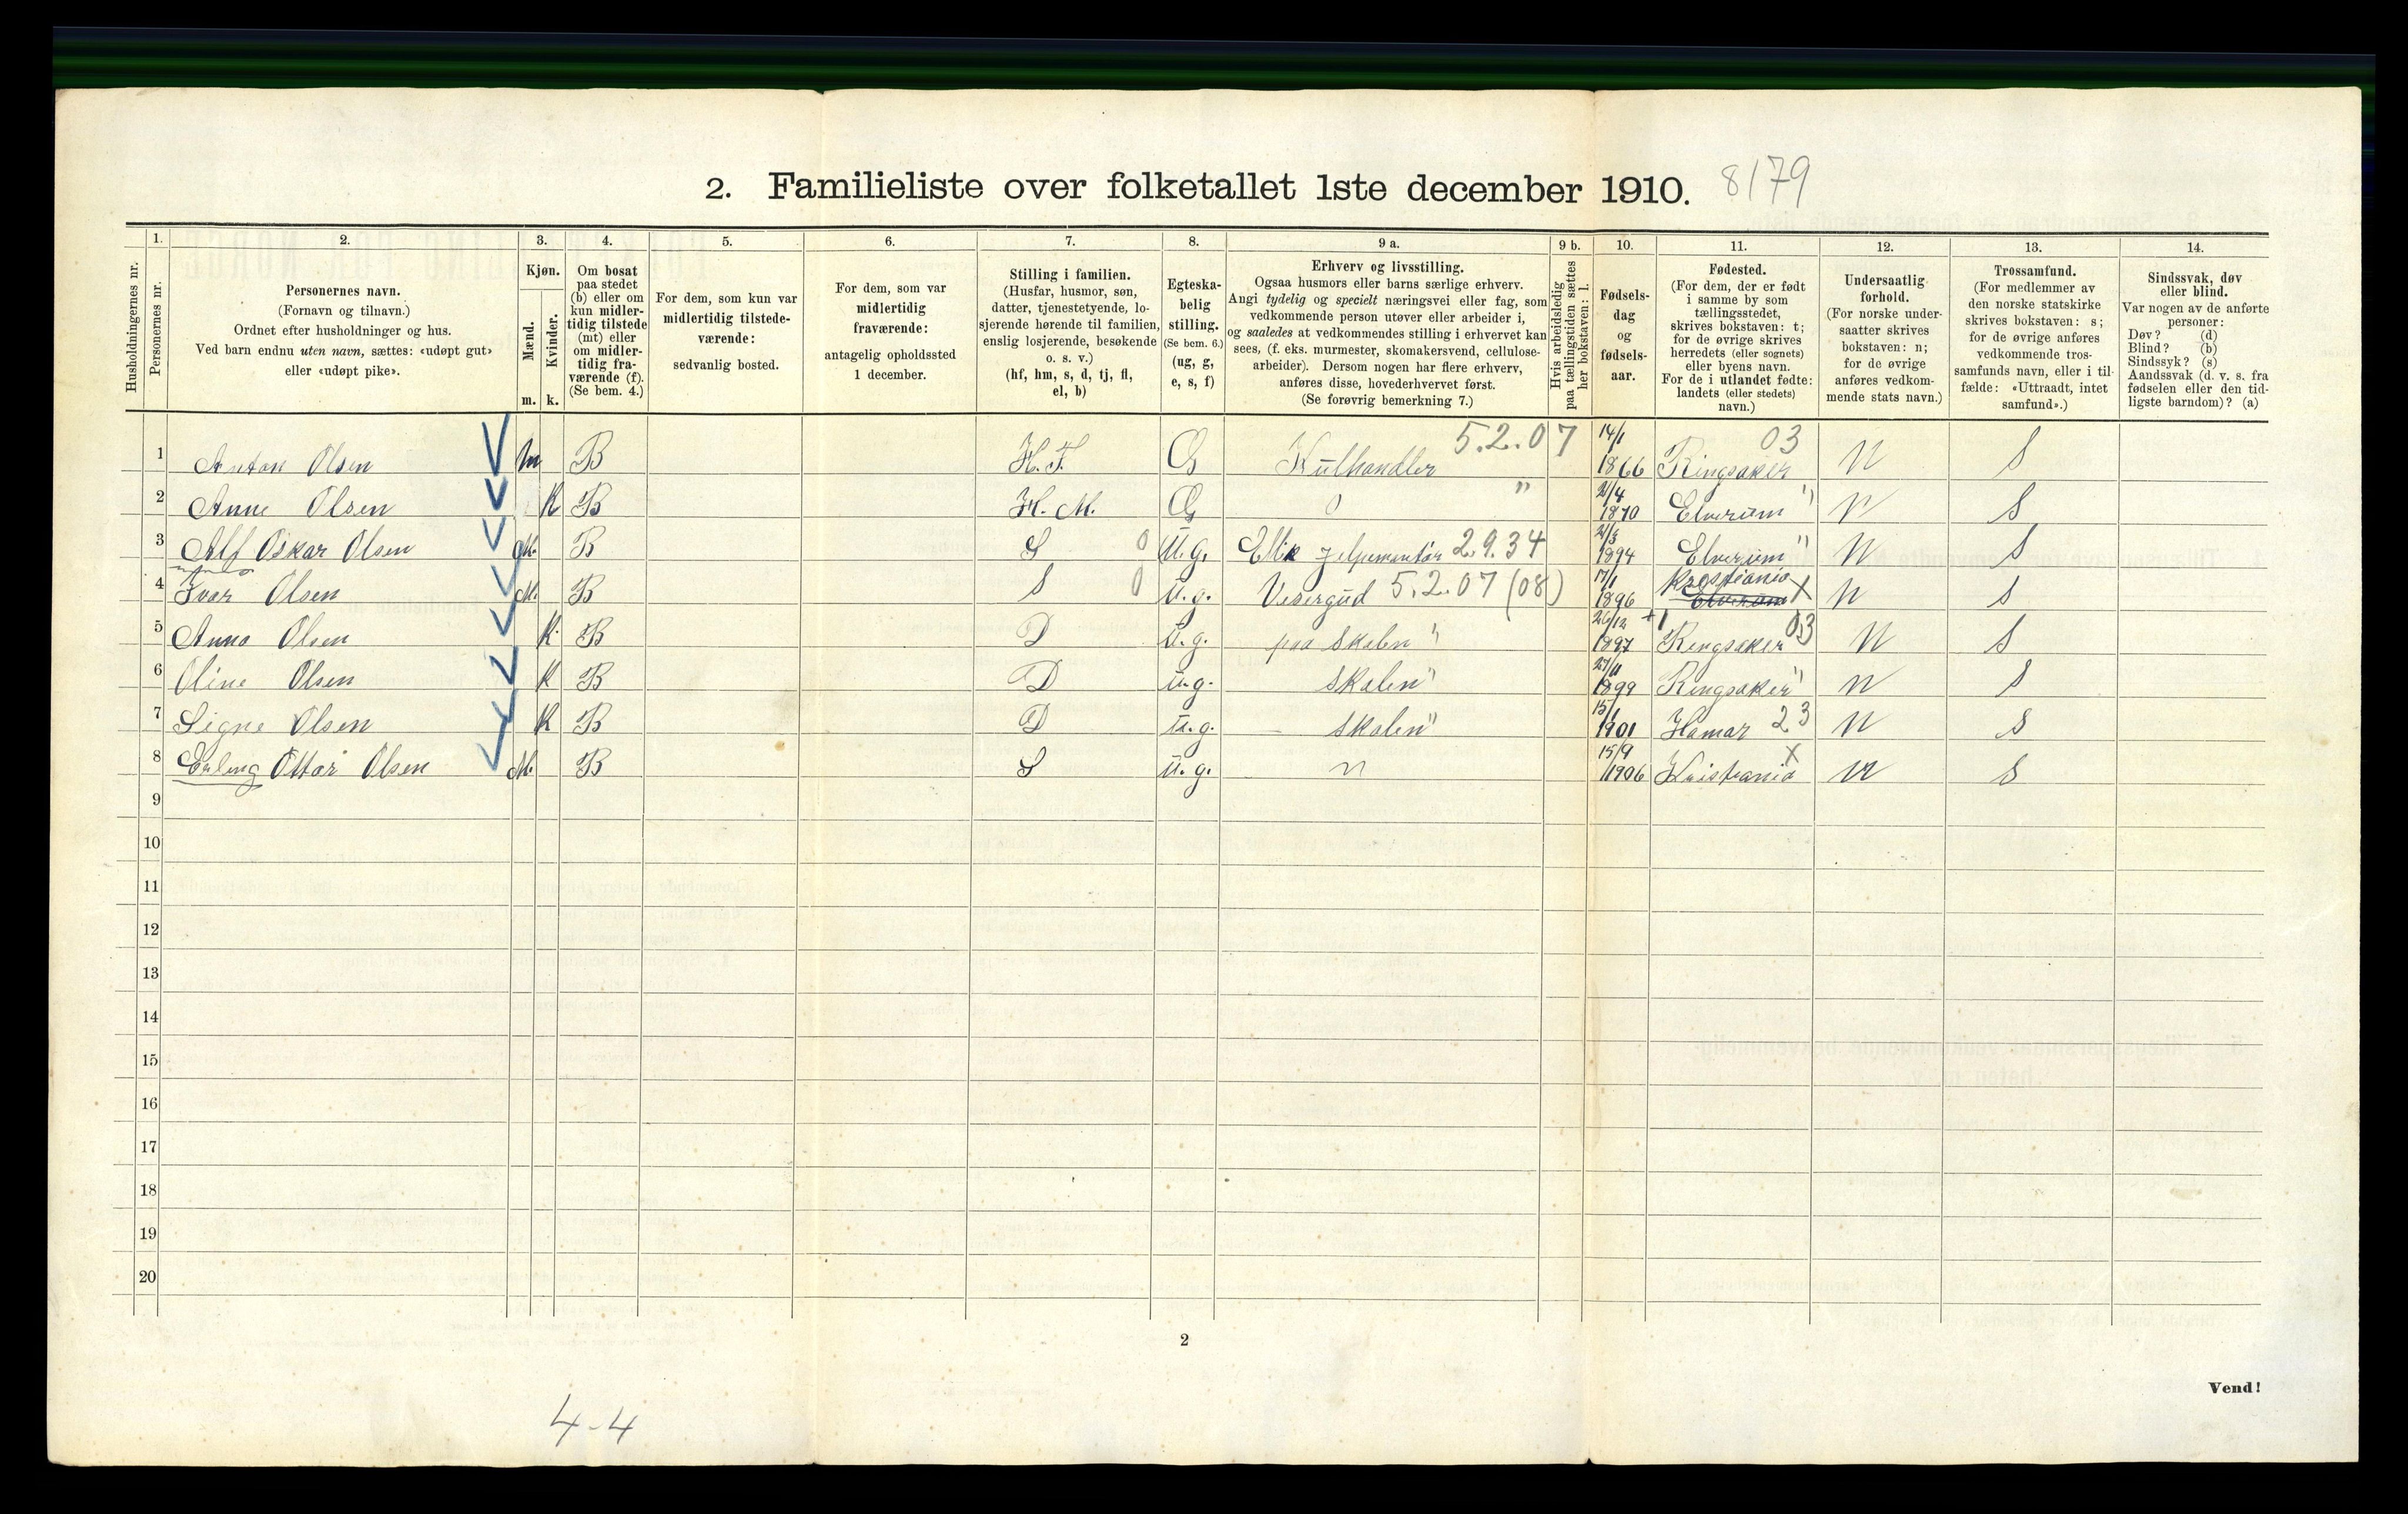 2. Familieliste over folketallet 1ste december 1910. 8179
Husholdningernes nr.
1. Personernes nr.
2. Personernes navn.
(Fornavn og tilnavn.)
Ordnet efter husholdninger og hus.
Ved barn endnu uten navn, sættes: «udøpt gut»
eller «udøpt pike».
3. Kjøn.
Mænd. m.
Kvinder. k.
4. Om bosat
paa stedet
(b) eller om
kun midler-
tidig tilstede
(mt) eller
om midler-
tidig fra-
værende (f).
(Se bem. 4.)
5. For dem, som kun var
midlertidig tilstede-
værende:
sedvanlig bosted.
6. For dem, som var
midlertidig
fraværende:
antagelig opholdssted
1 december.
7. Stilling i familien.
(Husfar, husmor, søn,
datter, tjenestetyende, lo-
sjerende hørende til familien,
enslig losjerende, besøkende
o. s. v.)
(hf, hm, s, d, tj, fl,
el, b)
8. Egteska-
belig
stilling.
(Se bem. 6.)
(ug, g,
e, s, f)
9 a. Erhverv og livsstilling.
Ogsaa husmors eller barns særlige erhverv.
Angi tydelig og specielt næringsvei eller fag, som
vedkommende person utøver eller arbeider i,
og saaledes at vedkommendes stilling i erhvervet kan
sees, (f. eks. murmester, skomakersvend, cellulose-
arbeider). Dersom nogen har flere erhverv,
anføres disse, hovederhvervet først.
(Se forøvrig bemerkning 7.)
9 b. Hvis arbeidsledig
paa tællingstiden sættes
her bokstaven: l.
10. Fødsels-
dag
og
fødsels-
aar.
11. Fødested.
(For dem, der er født
i samme by som
tællingsstedet,
skrives bokstaven: t;
for de øvrige skrives
herredets (eller sognets)
eller byens navn.
For de i utlandet fødte:
landets (eller stedets)
navn.)
12. Undersaatlig
forhold.
(For norske under-
saatter skrives
bokstaven: n;
for de øvrige
anføres vedkom-
mende stats navn.)
13. Trossamfund.
(For medlemmer av
den norske statskirke
skrives bokstaven: s;
for de øvrige anføres
vedkommende tros-
samfunds navn, eller i til-
fælde: «Uttraadt, intet
samfund».)
14. Sindssvak, døv
eller blind.
Var nogen av de anførte
personer:
Døv? (d)
Blind? (b)
Sindssyk? (s)
Aandssvak (d. v. s. fra
fødselen eller den tid-
ligste barndom)? (a)
1 Anton Olsen m B H. F. G Kulhandler 5.2.07 14/1 1866 Ringsaker 03 N S
2 Anne Olsen K B H. M. G 0 " 21/4 1870 Elverum " N S
3 Alf Oskar Olsen M. B S 0 U.g. Elik jelpemontør 2.9.34 21/3 1894 Elverum " N S
4 Ivar Olsen M. B S 0 u.g. Visergud 5.2.07 (08) 17/1 1896 Krestiania Elverum X N S
5 Anna Olsen K. B D u.g. paa skolen " 26/12 1897 Ringsaker 03 N S
6 Oline Olsen K B D u.g. skolen " 27/11 1899 Ringsaker " N S
7 Signe Olsen K B D u.g. skolen " 15/1 1901 Hamar 23 N S
8 Erling Ottar Olsen M. B S u.g. n 15/9 1906 Kristiania X N S
9
10
11
12
13
14
15
16
17
18
19
20
2
Vend!
4-4